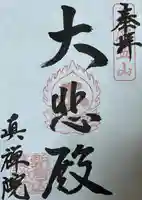 奉拝
大悲殿
真禅院